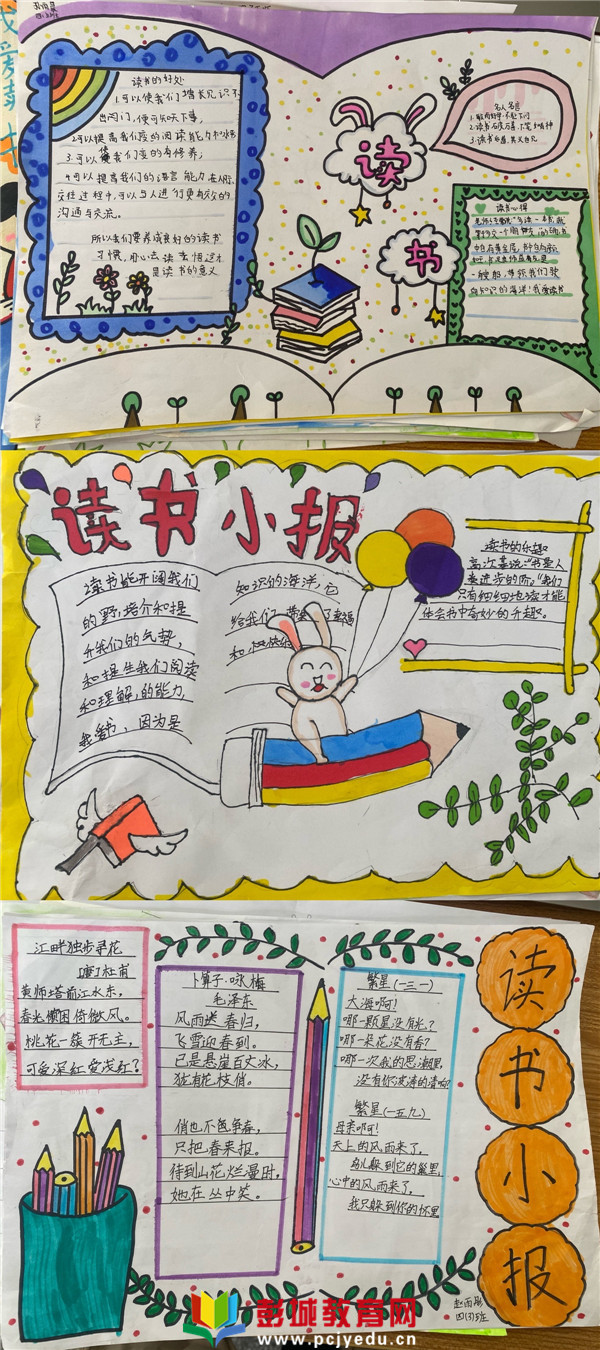 四(3)班
读书的好处
1.可以使我们增长见识不
出闭门,便可知天下事,
2.可以提高我们的阅读能力和水
3.可以使我们变的有修养;
4.可以提高我们的语言能力在人际
交往过程中,可以与人进行更有效的
沟通与交流。
所以我们要养成良好的读书
习惯,用心去读去悟这才
是读书的意义
读
书
名人名言
3.读书百遍,其义自见
读书心得
向知识的海洋!我爱读书
读书小报
读书能开阔我们
的野,培介和提
升我们的气势,
和提生我们阅读
和理解,的能力,
我爱书,因为是
知识的海洋,它
给我们带来了幸福
和快乐
读书的乐趣
高尔基说:“书是人
类进步的阶,“我们
只有细细地读才能
体会书中奇妙的乐趣。
江畔独步寻花
[唐]杜甫
黄师塔前江水东,
春光懒困倚微风。
桃花一簇开无主,
可爱深红爱浅红?
卜算子·咏梅
毛泽东
风雨送春归,
飞雪迎春到。
已是悬崖百丈冰,
犹有花枝俏。
俏也不争春,
只把春来报。
待到山花烂漫时,
她在丛中笑。
繁星(一三一)
大海啊!
哪一颗星没有光?
哪一朵花没有香?
哪一次我的思潮里,
没有你波涛的清响?
繁星(一五九)
母亲啊!
天上的风雨来了,
鸟儿躲到它的巢里,
心中的风雨来了,
我只躲到你的怀里
读
书
小
报
四(3)班
彭城教育网
www.pcjyedu.cn